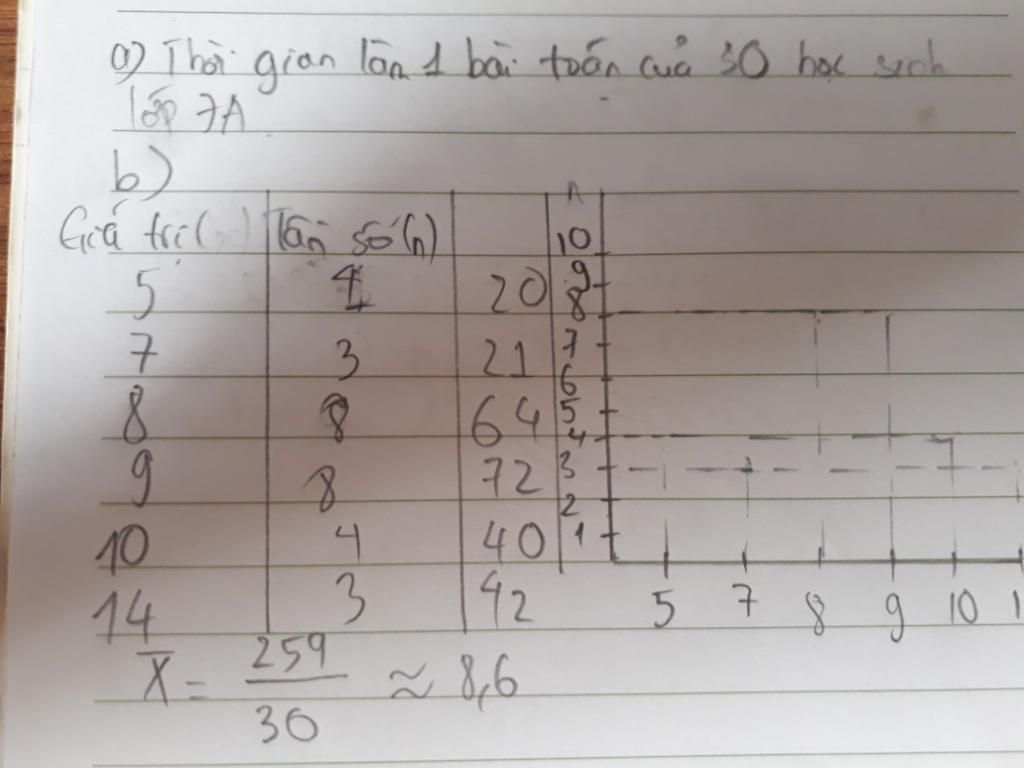 a) Thời gian làm 1 bài toán của 30 học sinh
lớp 7A
b)
Giá trị ( ) Tần số (n)
5 4 20
7 3 21
8 8 64
9 8 72
10 4 40
14 3 42
X̄ = 259/30 ≈ 8,6
n
10
9
8
7
6
5
4
3
2
1
5 7 8 9 10 1